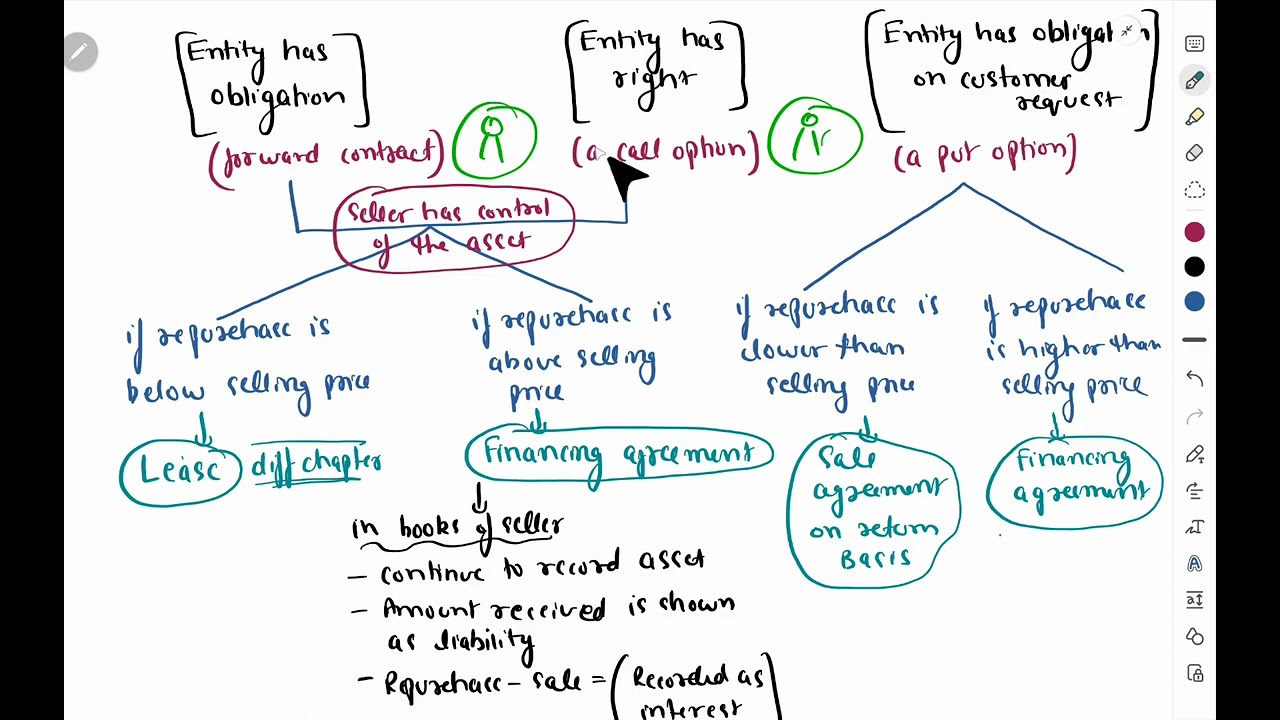 Entity has
obligation
(forward contract)
Entity has
right
(a call option)
Entity has obligation
on customer
request
(a put option)
Seller has control
of the asset
if repurchase is
below selling price
Lease
diff chapter
if repurchase is
above selling
price
Financing agreement
in books of seller
- continue to record asset
- Amount received is shown
as liability
- Repurchase - sale = (Recorded as
interest
if repurchase is
lower than
selling price
Sale
agreement
on return
Basis
if repurchase
is higher than
selling price
Financing
agreement